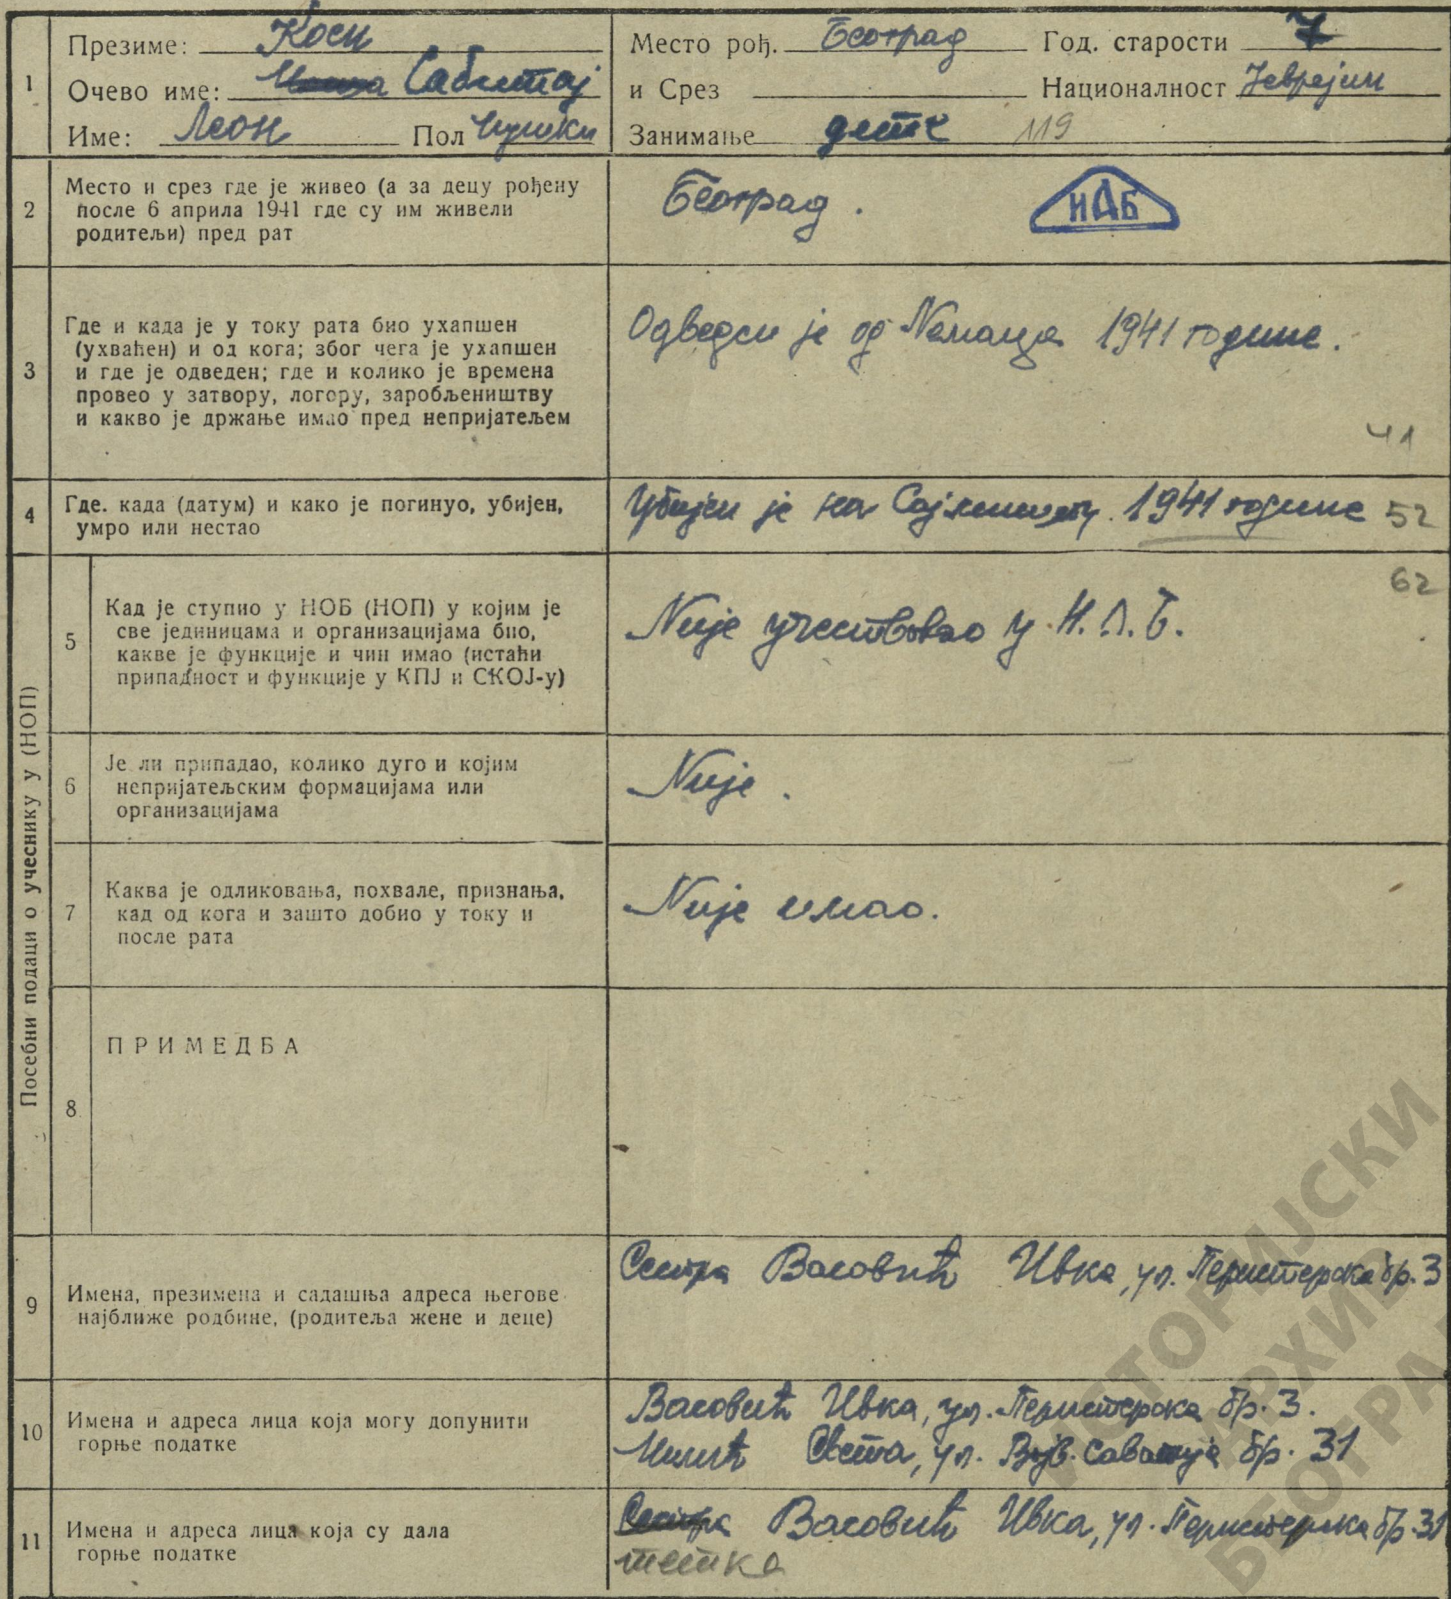 1
Презиме: Коен
Очево име: Сабетај
Име: Леон Пол мушки
Место рођ. Београд Год. старости 7
и Срез Националност Јеврејин
Занимање дете 119
2
Место и срез где је живео (а за децу рођену
после 6 априла 1941 где су им живели
родитељи) пред рат
Београд.
НАБ
3
Где и када је у току рата био ухапшен
(ухваћен) и од кога; због чега је ухапшен
и где је одведен; где и колико је времена
провео у затвору, логору, заробљеништву
и какво је држање имао пред непријатељем
Одведен је од Немаца 1941 године.
41
4
Где. када (датум) и како је погинуо, убијен,
умро или нестао
Убијен је на Сајмишту. 1941 године 52
62
Посебни подаци о учеснику у (НОП)
5
Кад је ступио у НОБ (НОП) у којим је
све јединицама и организацијама био,
какве је функције и чин имао (истаћи
припадност и функције у КПЈ и СКОЈ-у)
Није учествовао у Н.О.Б.
6
Је ли припадао, колико дуго и којим
непријатељским формацијама или
организацијама
Није.
7
Каква је одликовања, похвале, признања,
кад од кога и зашто добио у току и
после рата
Није имао.
8
ПРИМЕДБА
9
Имена, презимена и садашња адреса његове
најближе родбине, (родитеља жене и деце)
Сестра Васовић Ивка, ул. Перистерска бр. 3
10
Имена и адреса лица која могу допунити
горње податке
Васовић Ивка, ул. Перистерска бр. 3.
Света, ул. Војв. Саватија бр. 31
11
Имена и адреса лица која су дала
горње податке
Сестра Васовић Ивка, ул. Перистерска бр. 31
тетка
ИСТОРИЈСКИ
АРХИВ
БЕОГРА